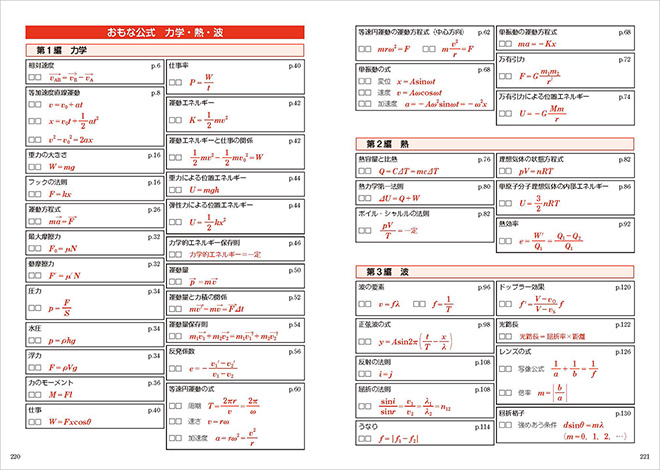 おもな公式 力学・熱・波
第1編 力学
相対速度 p.6
□□ v_AB = v_B − v_A
等加速度直線運動 p.8
□□ v = v₀ + at
□□ x = v₀t + 1/2 at²
□□ v² − v₀² = 2ax
重力の大きさ p.16
□□ W = mg
フックの法則 p.16
□□ F = kx
運動方程式 p.26
□□ ma = F
最大摩擦力 p.32
□□ F₀ = μN
動摩擦力 p.32
□□ F′ = μ′N
圧力 p.34
□□ p = F/S
水圧 p.34
□□ p = ρhg
浮力 p.34
□□ F = ρVg
力のモーメント p.36
□□ M = Fl
仕事 p.40
□□ W = Fxcosθ
仕事率 p.40
□□ P = W/t
運動エネルギー p.42
□□ K = 1/2 mv²
運動エネルギーと仕事の関係 p.42
□□ 1/2 mv² − 1/2 mv₀² = W
重力による位置エネルギー p.44
□□ U = mgh
弾性力による位置エネルギー p.44
□□ U = 1/2 kx²
力学的エネルギー保存則 p.46
□□ 力学的エネルギー=一定
運動量 p.50
□□ p = mv
運動量と力積の関係 p.52
□□ mv′ − mv = FΔt
運動量保存則 p.54
□□ m₁v₁ + m₂v₂ = m₁v₁′ + m₂v₂′
反発係数 p.56
□□ e = − (v₁′ − v₂′)/(v₁ − v₂)
等速円運動の式 p.60
□□ 周期 T = 2πr/v = 2π/ω
□□ 速さ v = rω
□□ 加速度 a = rω² = v²/r
220
等速円運動の運動方程式(中心方向) p.62
□□ mrω² = F □□ m v²/r = F
単振動の式 p.68
□□ 変位 x = Asinωt
□□ 速度 v = Aωcosωt
□□ 加速度 a = −Aω²sinωt = −ω²x
単振動の運動方程式 p.68
□□ ma = −Kx
万有引力 p.72
□□ F = G m₁m₂/r²
万有引力による位置エネルギー p.74
□□ U = −G Mm/r
第2編 熱
熱容量と比熱 p.76
□□ Q = CΔT = mcΔT
熱力学第一法則 p.80
□□ ΔU = Q + W
ボイル・シャルルの法則 p.82
□□ pV/T = 一定
理想気体の状態方程式 p.82
□□ pV = nRT
単原子分子理想気体の内部エネルギー p.86
□□ U = 3/2 nRT
熱効率 p.92
□□ e = W′/Q₁ = (Q₁ − Q₂)/Q₁
第3編 波
波の要素 p.96
□□ v = fλ □□ f = 1/T
正弦波の式 p.98
□□ y = Asin2π(t/T − x/λ)
反射の法則 p.108
□□ i = j
屈折の法則 p.108
□□ sini/sinr = v₁/v₂ = λ₁/λ₂ = n₁₂
うなり p.114
□□ f = |f₁ − f₂|
ドップラー効果 p.120
□□ f′ = (V − v_O)/(V − v_S) f
光路長 p.122
□□ 光路長=屈折率×距離
レンズの式 p.126
□□ 写像公式 1/a + 1/b = 1/f
□□ 倍率 m = |b/a|
回折格子 p.130
□□ 強めあう条件 dsinθ = mλ
(m = 0, 1, 2, …)
221